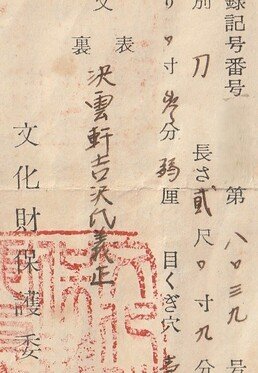 録記号番号 第 八〇三九 号
別 刀 長さ 貳 尺 〇 寸 九 分
り 〇 寸 分 弱 厘 目くぎ穴
文 表 決雲軒吉沢氏義正
裏
文化財保護委